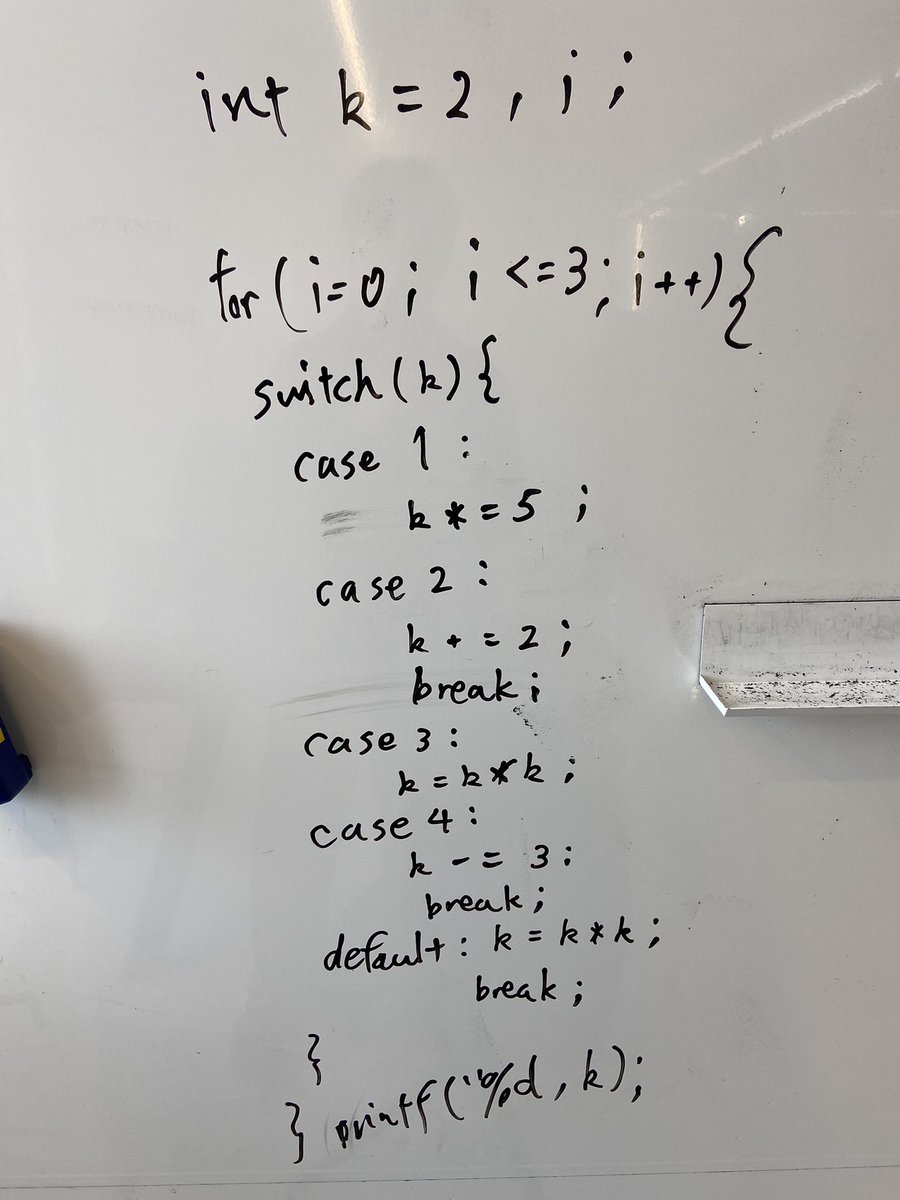 int k = 2 , i ;
for ( i = 0 ; i <= 3 ; i ++ ) {
switch ( k ) {
case 1 :
k * = 5 ;
case 2 :
k + = 2 ;
break ;
case 3 :
k = k * k ;
case 4 :
k - = 3 :
break ;
default : k = k * k ;
break ;
}
} printf ( "%d , k ) ;